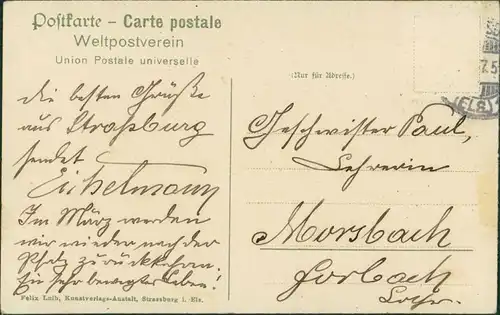 Postkarte – Carte postale
Weltpostverein
Union Postale universelle
(Nur für Adresse.)
die besten Grüße
aus Straßburg
sendet
Eichelmann
Im März werden
wir wieder nach der
Pfalz zurückkehren.
Ein sehr bewegtes Leben!
Felix Luib, Kunstverlags-Anstalt, Strassburg i. Els.
Geschwister Paul,
Lehrerin
Morsbach
Forbach
Lothr.
(ELS)